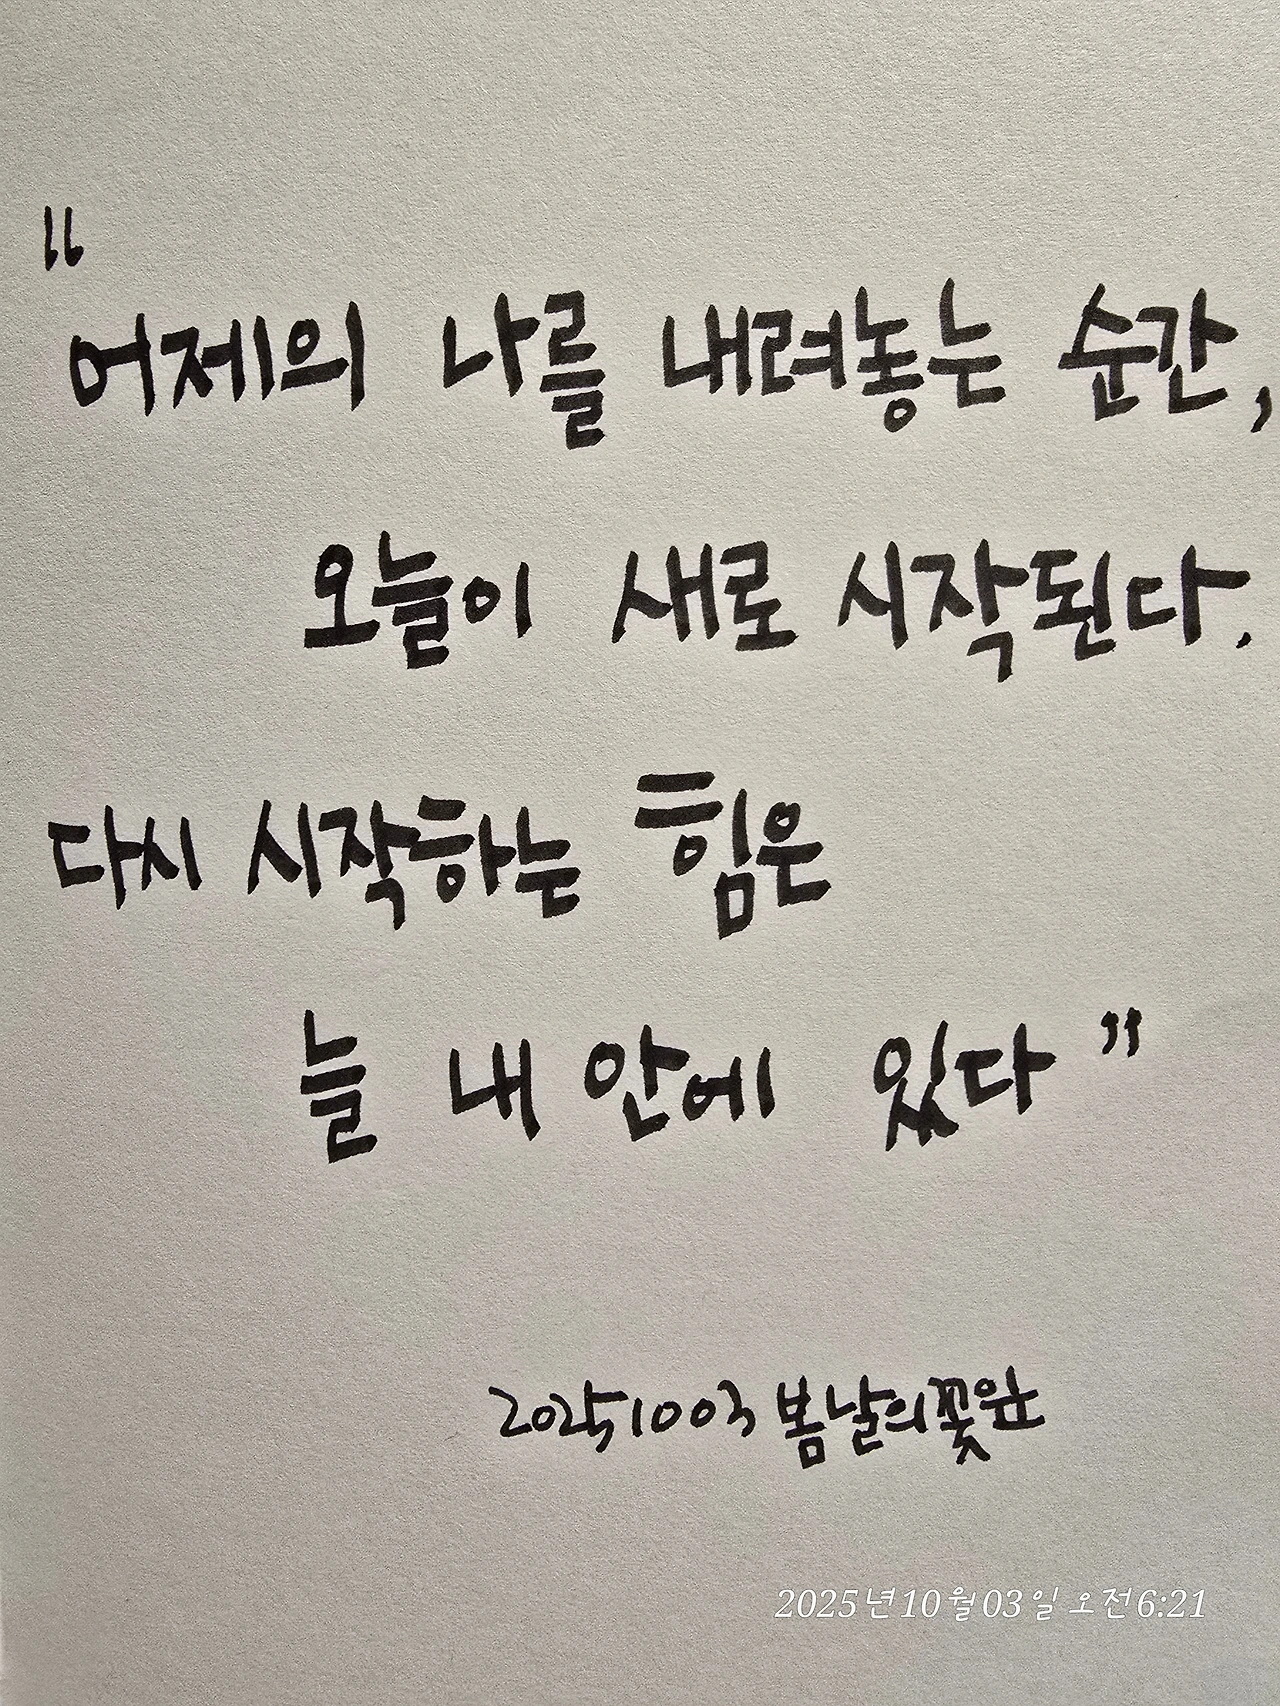 "어제의 나를 내려놓는 순간,
오늘이 새로 시작된다.
다시 시작하는 힘은
늘 내 안에 있다"
20251003 봄날의꽃윤
2025년10월03일 오전6:21